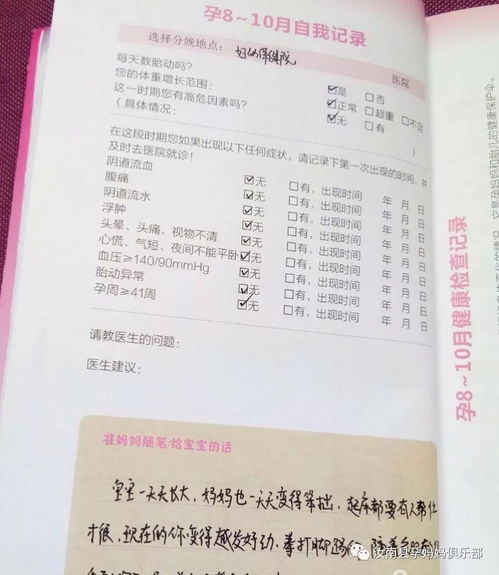 孕8~10月自我记录
选择分娩地点: 妇幼保健院 医院
每天数胎动吗? ☑是 □否
您的体重增长范围: ☑正常 □超重 □不足
这一时期您有高危因素吗? ☑无 □有
(具体情况: )
在这段时期您如果出现以下任何症状，请记录下第一次出现的时间，并
及时去医院就诊!
阴道流血 ☑无 □有，出现时间 年 月 日
腹痛 ☑无 □有，出现时间 年 月 日
阴道流水 ☑无 □有，出现时间 年 月 日
浮肿 ☑无 □有，出现时间 年 月 日
头晕、头痛、视物不清 ☑无 □有，出现时间 年 月 日
心慌、气短、夜间不能平卧 ☑无 □有，出现时间 年 月 日
血压≥140/90mmHg ☑无 □有，出现时间 年 月 日
胎动异常 ☑无 □有，出现时间 年 月 日
孕周≥41周 ☑无 □有，出现时间 年 月 日
请教医生的问题:
医生建议:
准妈妈随笔/给宝宝的话
宝宝一天天长大，妈妈也一天天变得笨拙，起床都要有人帮忙
才很，现在的你变得越发好动，拳打脚踢
孕8~10月健康检查记录
汝南县孕妈妈俱乐部